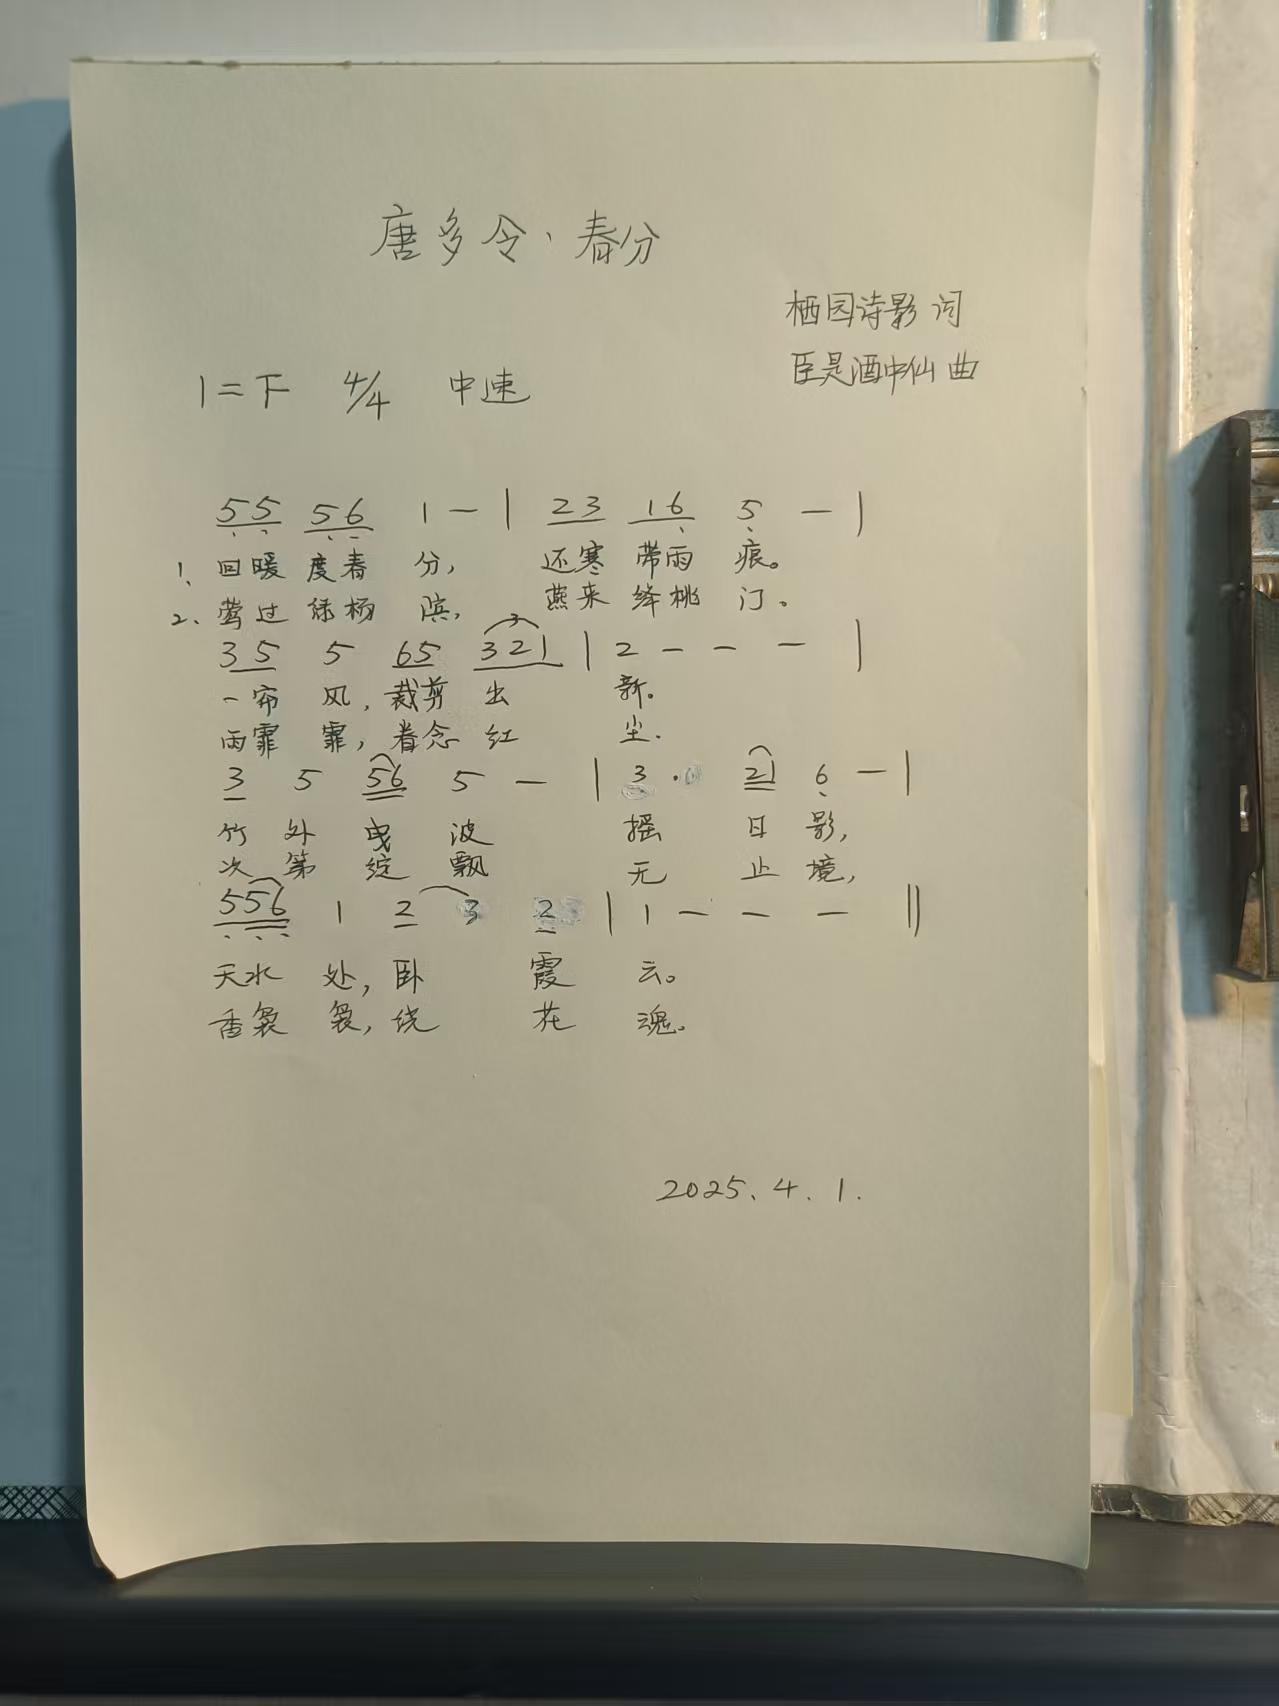 唐多令、春分
栖园诗影 词
臣是酒中仙 曲
1=F 4/4 中速
55 56 1 - | 23 16 5 - |
1、回暖 度春 分, 还寒 带雨 痕。
2、莺过 绿杨 滨, 燕来 绛桃 门。
3
35 5 65 321 | 2 - - - |
一帘 风, 裁剪 出 新。
雨霏 霏, 眷念 红 尘.
3 5 56 5 - | 3 · 21 6 - |
竹 外 曳 波 摇 日 影,
次 第 绽 飘 无 止 境,
556 1 2 3 2 | 1 - - - ||
天水 处, 卧 霞 云。
香袅 袅, 绕 花 魂。
2025、4.1.